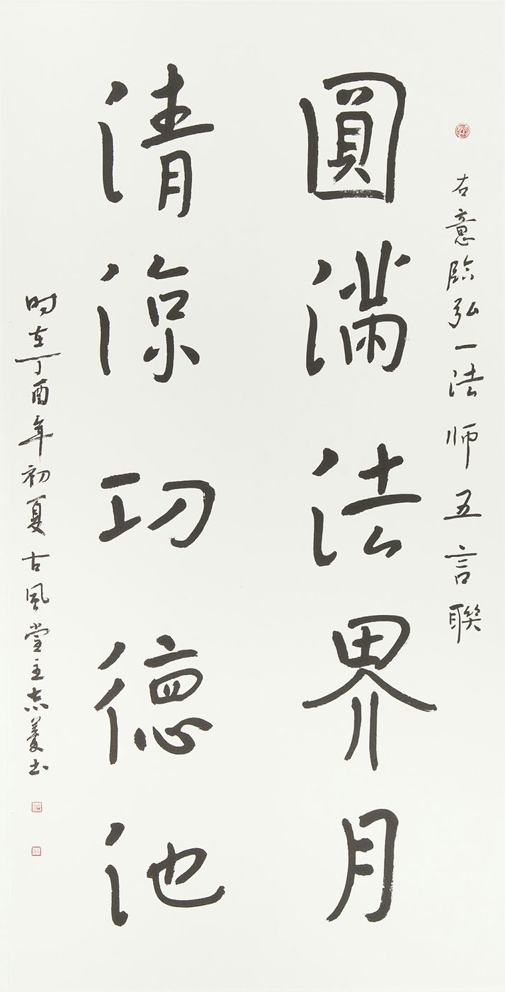 古意臨弘一法师五言聯
圓滿法界月
清涼功德池
时在丁酉年初夏古風堂主志菱书